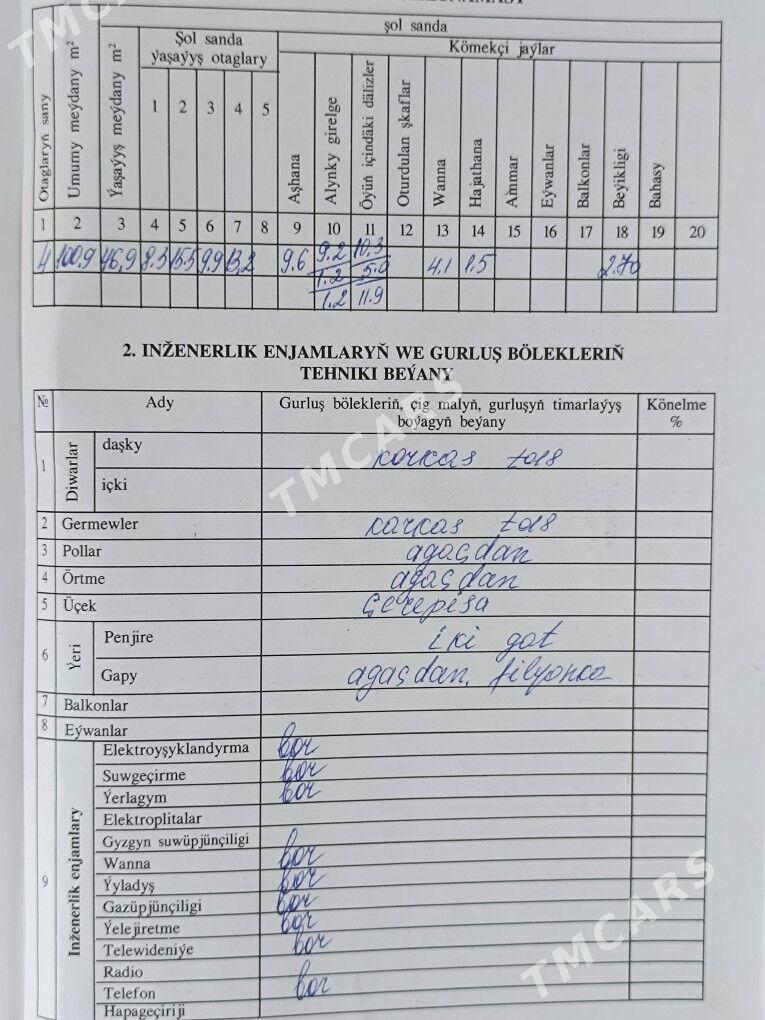 şol sanda
Otaglaryň sany
Umumy meýdany m²
Ýaşaýyş meýdany m²
Şol sanda
ýaşaýyş otaglary
Kömekçi jaýlar
1 2 3 4 5
Aşhana
Alynky girelge
Öýüň içindäki dälizler
Oturdulan şkaflar
Wanna
Hajathana
Ammar
Eýwanlar
Balkonlar
Beýikligi
Bahasy
1 2 3 4 5 6 7 8 9 10 11 12 13 14 15 16 17 18 19 20
4 100.9 46,9 8.3 15.5 9.9 13,2 9.6 9.2 10.3 4.1 1.5 2.70
1.2 5.0
1.2 11.9
2. INŽENERLIK ENJAMLARYŇ WE GURLUŞ BÖLEKLERIŇ
TEHNIKI BEÝANY
№ Ady Gurluş bölekleriň, çig malyň, gurluşyň timarlaýyş Könelme
boýagyň beýany %
1 Diwarlar daşky karkas tors
içki
2 Germewler karkas tors
3 Pollar agaçdan
4 Örtme agaçdan
5 Üçek Çerepisa
6 Ýeri Penjire iki gat
Gapy agaçdan, filýonka
7 Balkonlar
8 Eýwanlar
9 Inženerlik enjamlary Elektroyşyklandyrma bar
Suwgeçirme bar
Ýerlagym bar
Elektroplitalar
Gyzgyn suwüpjünçiligi
Wanna bar
Ýyladyş bar
Gazüpjünçiligi bar
Ýelejiretme bar
Telewideniýe bar
Radio
Telefon bar
Hapageçiriji
TMCARS
TMCARS
TMCARS